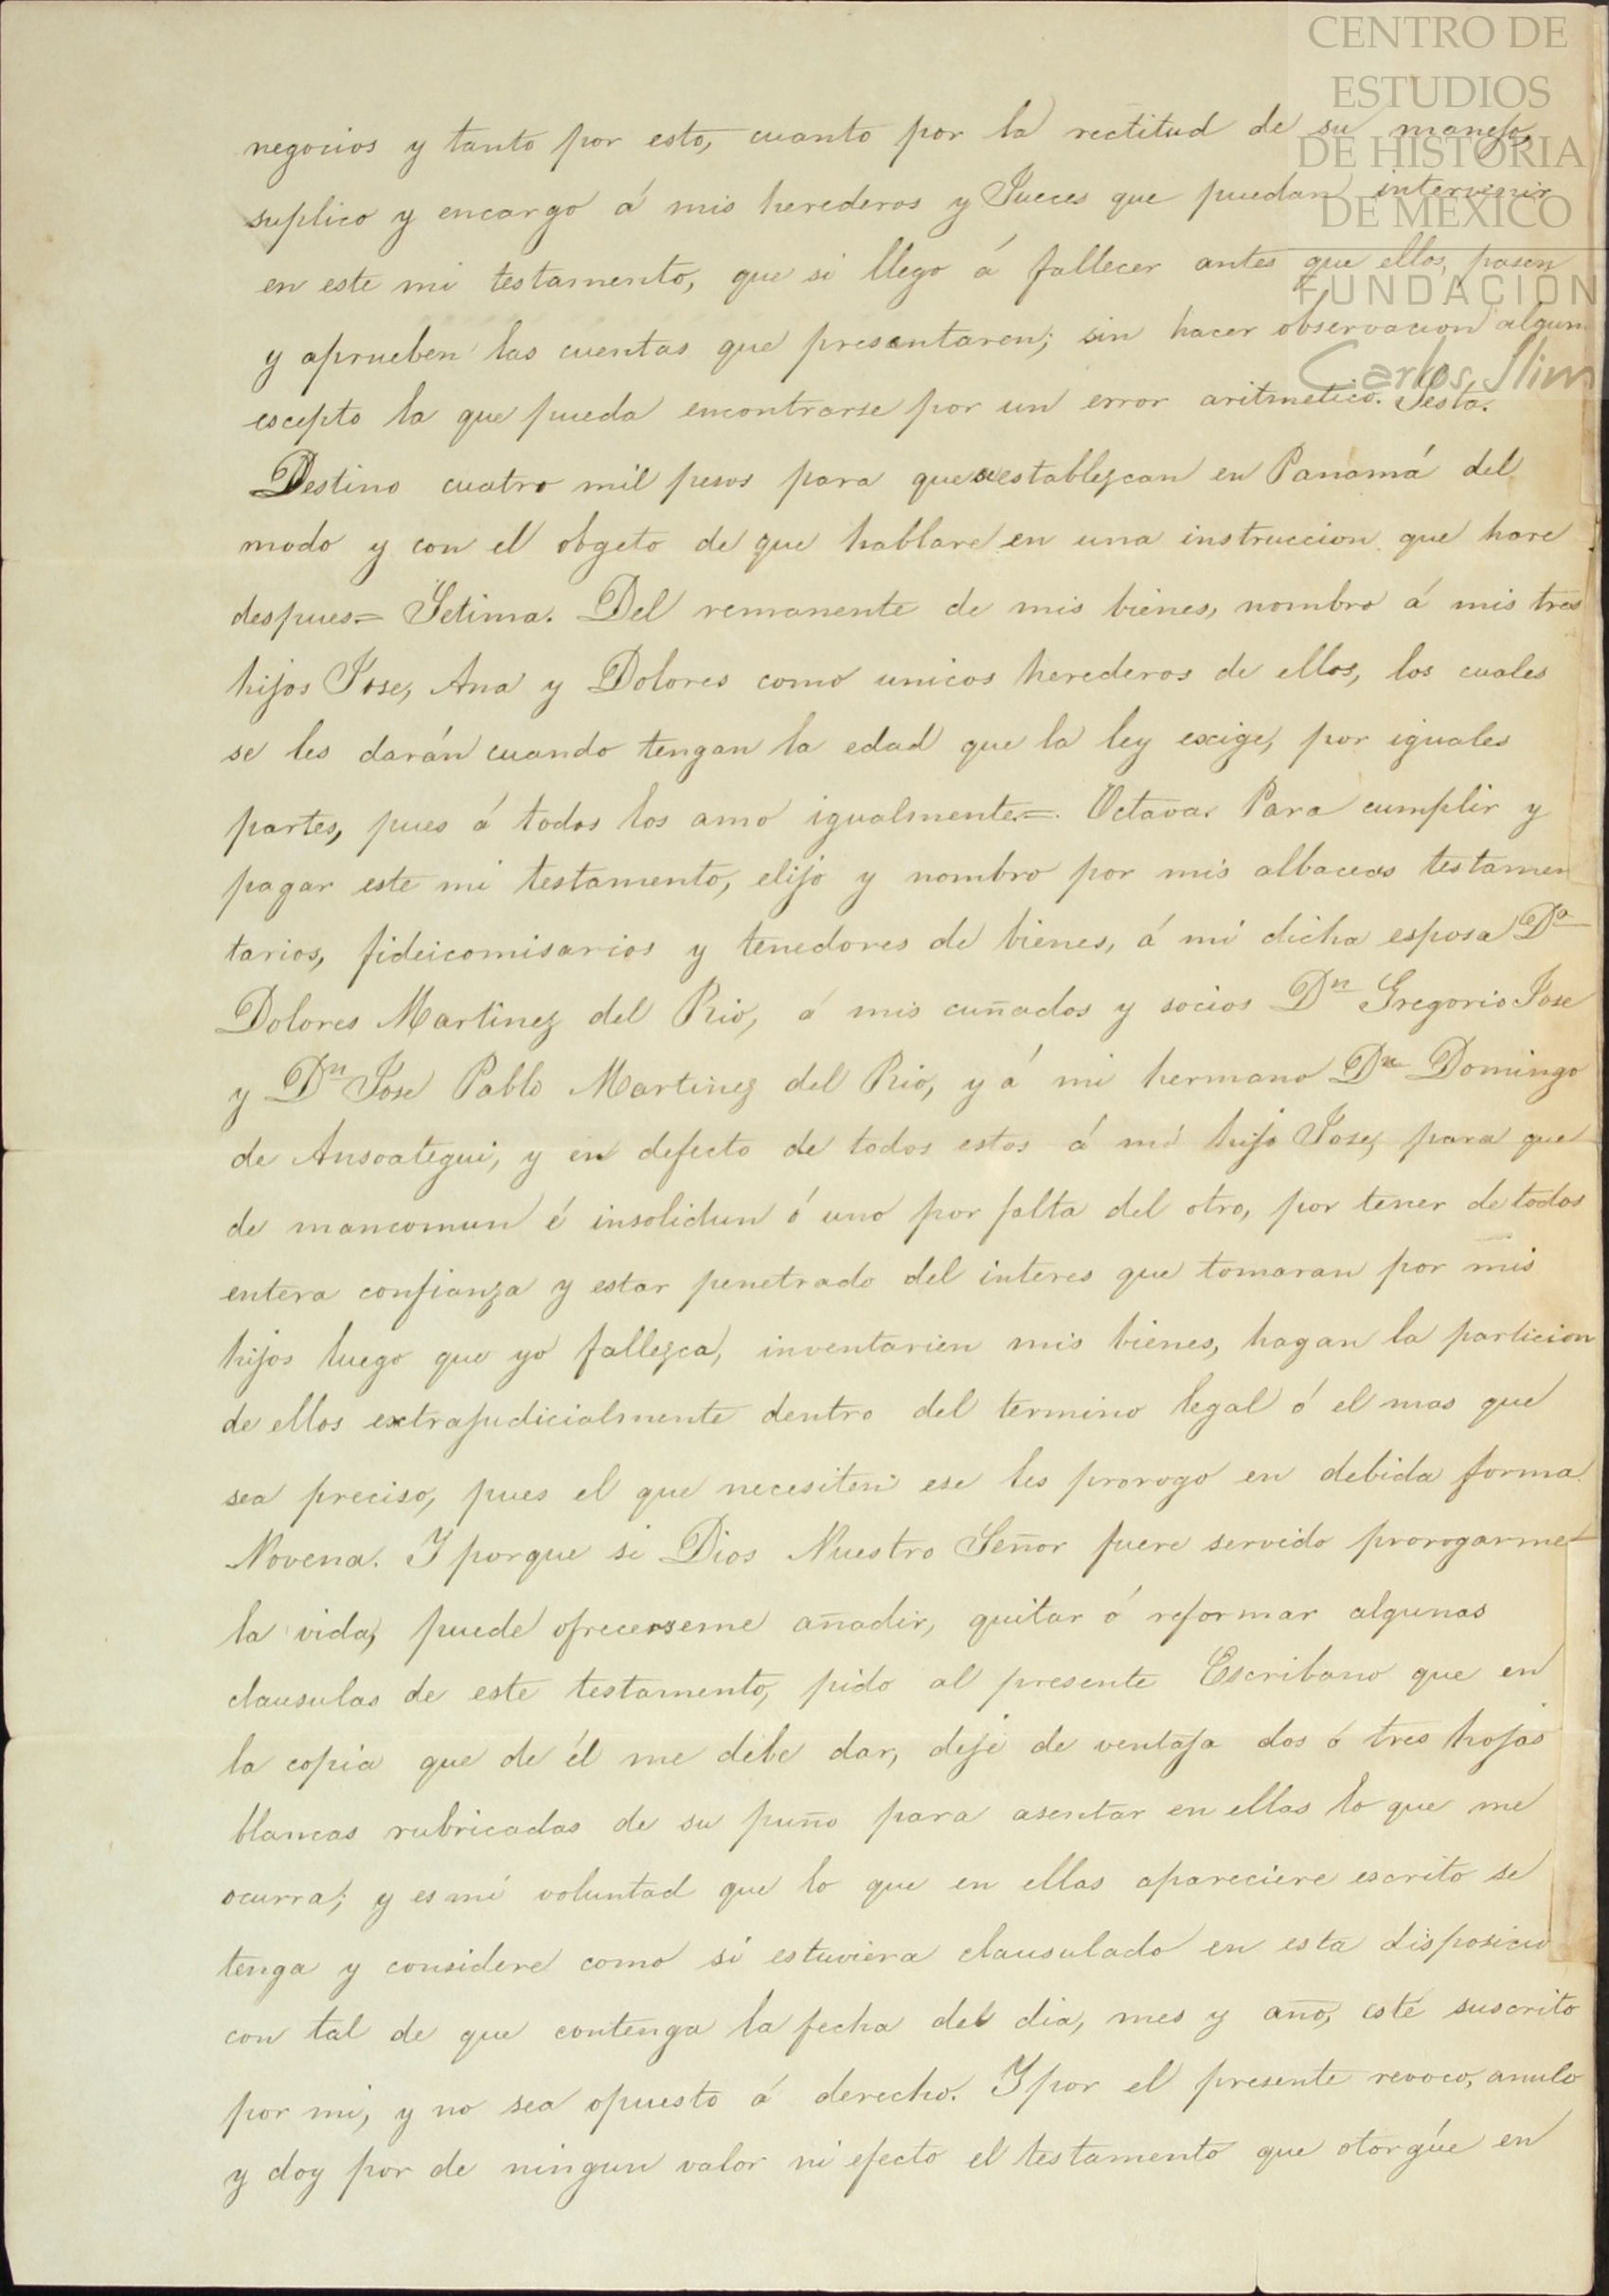 CENTRO DE
ESTUDIOS
DE HISTORIA
DE MEXICO
FUNDACION
Carlos Slim
negocios y tanto por esto, cuanto por la rectitud de su manejo,
suplico y encargo á mis herederos y Jueces que puedan intervenir
en este mi testamento, que si llego á fallecer antes que ellos, pasen
y aprueben las cuentas que presentaren; sin hacer observacion algun
escepto la que pueda encontrarse por un error aritmetico. Sesta.
Destino cuatro mil pesos para que se establezcan en Panamá del
modo y con el obgeto de que hablare en una instruccion que hare
despues= Setima. Del remanente de mis bienes, nombro á mis tres
hijos Jose, Ana y Dolores como unicos herederos de ellos, los cuales
se les darán cuando tengan la edad que la ley exige, por iguales
partes, pues á todos los amo igualmente.=. Octava. Para cumplir y
pagar este mi testamento, elijo y nombro por mis albaceas testamen
tarios, fideicomisarios y tenedores de bienes, á mi dicha esposa Dª
Dolores Martinez del Rio, á mis cuñados y socios Dn Gregorio Jose
y Dn Jose Pablo Martinez del Rio, y á mi hermano Dn Domingo
de Ansoategui, y en defecto de todos estos á mi hijo Jose, para que
de mancomun é insolidun ó uno por falta del otro, por tener de todos
entera confianza y estar penetrado del interes que tomaran por mis
hijos luego que yo fallezca, inventarien mis bienes, hagan la particion
de ellos extrajudicialmente dentro del termino legal ó el mas que
sea preciso, pues el que necesiten ese les prorogo en debida forma.
Novena. Y porque si Dios Nuestro Señor fuere servido prorogarme
la vida, puede ofrecerseme añadir, quitar ó reformar algunas
clausulas de este testamento, pido al presente Escribano que en
la copia que de él me debe dar, deje de ventaja dos ó tres hojas
blancas rubricadas de su puño para asentar en ellas lo que me
ocurra; y es mi voluntad que lo que en ellas apareciere escrito se
tenga y considere como si estuviera clausulado en esta disposicio
con tal de que contenga la fecha del dia, mes y año, esté suscrito
por mi, y no sea opuesto á derecho. Y por el presente revoco, anulo
y doy por de ningun valor ni efecto el testamento que otorgúe en